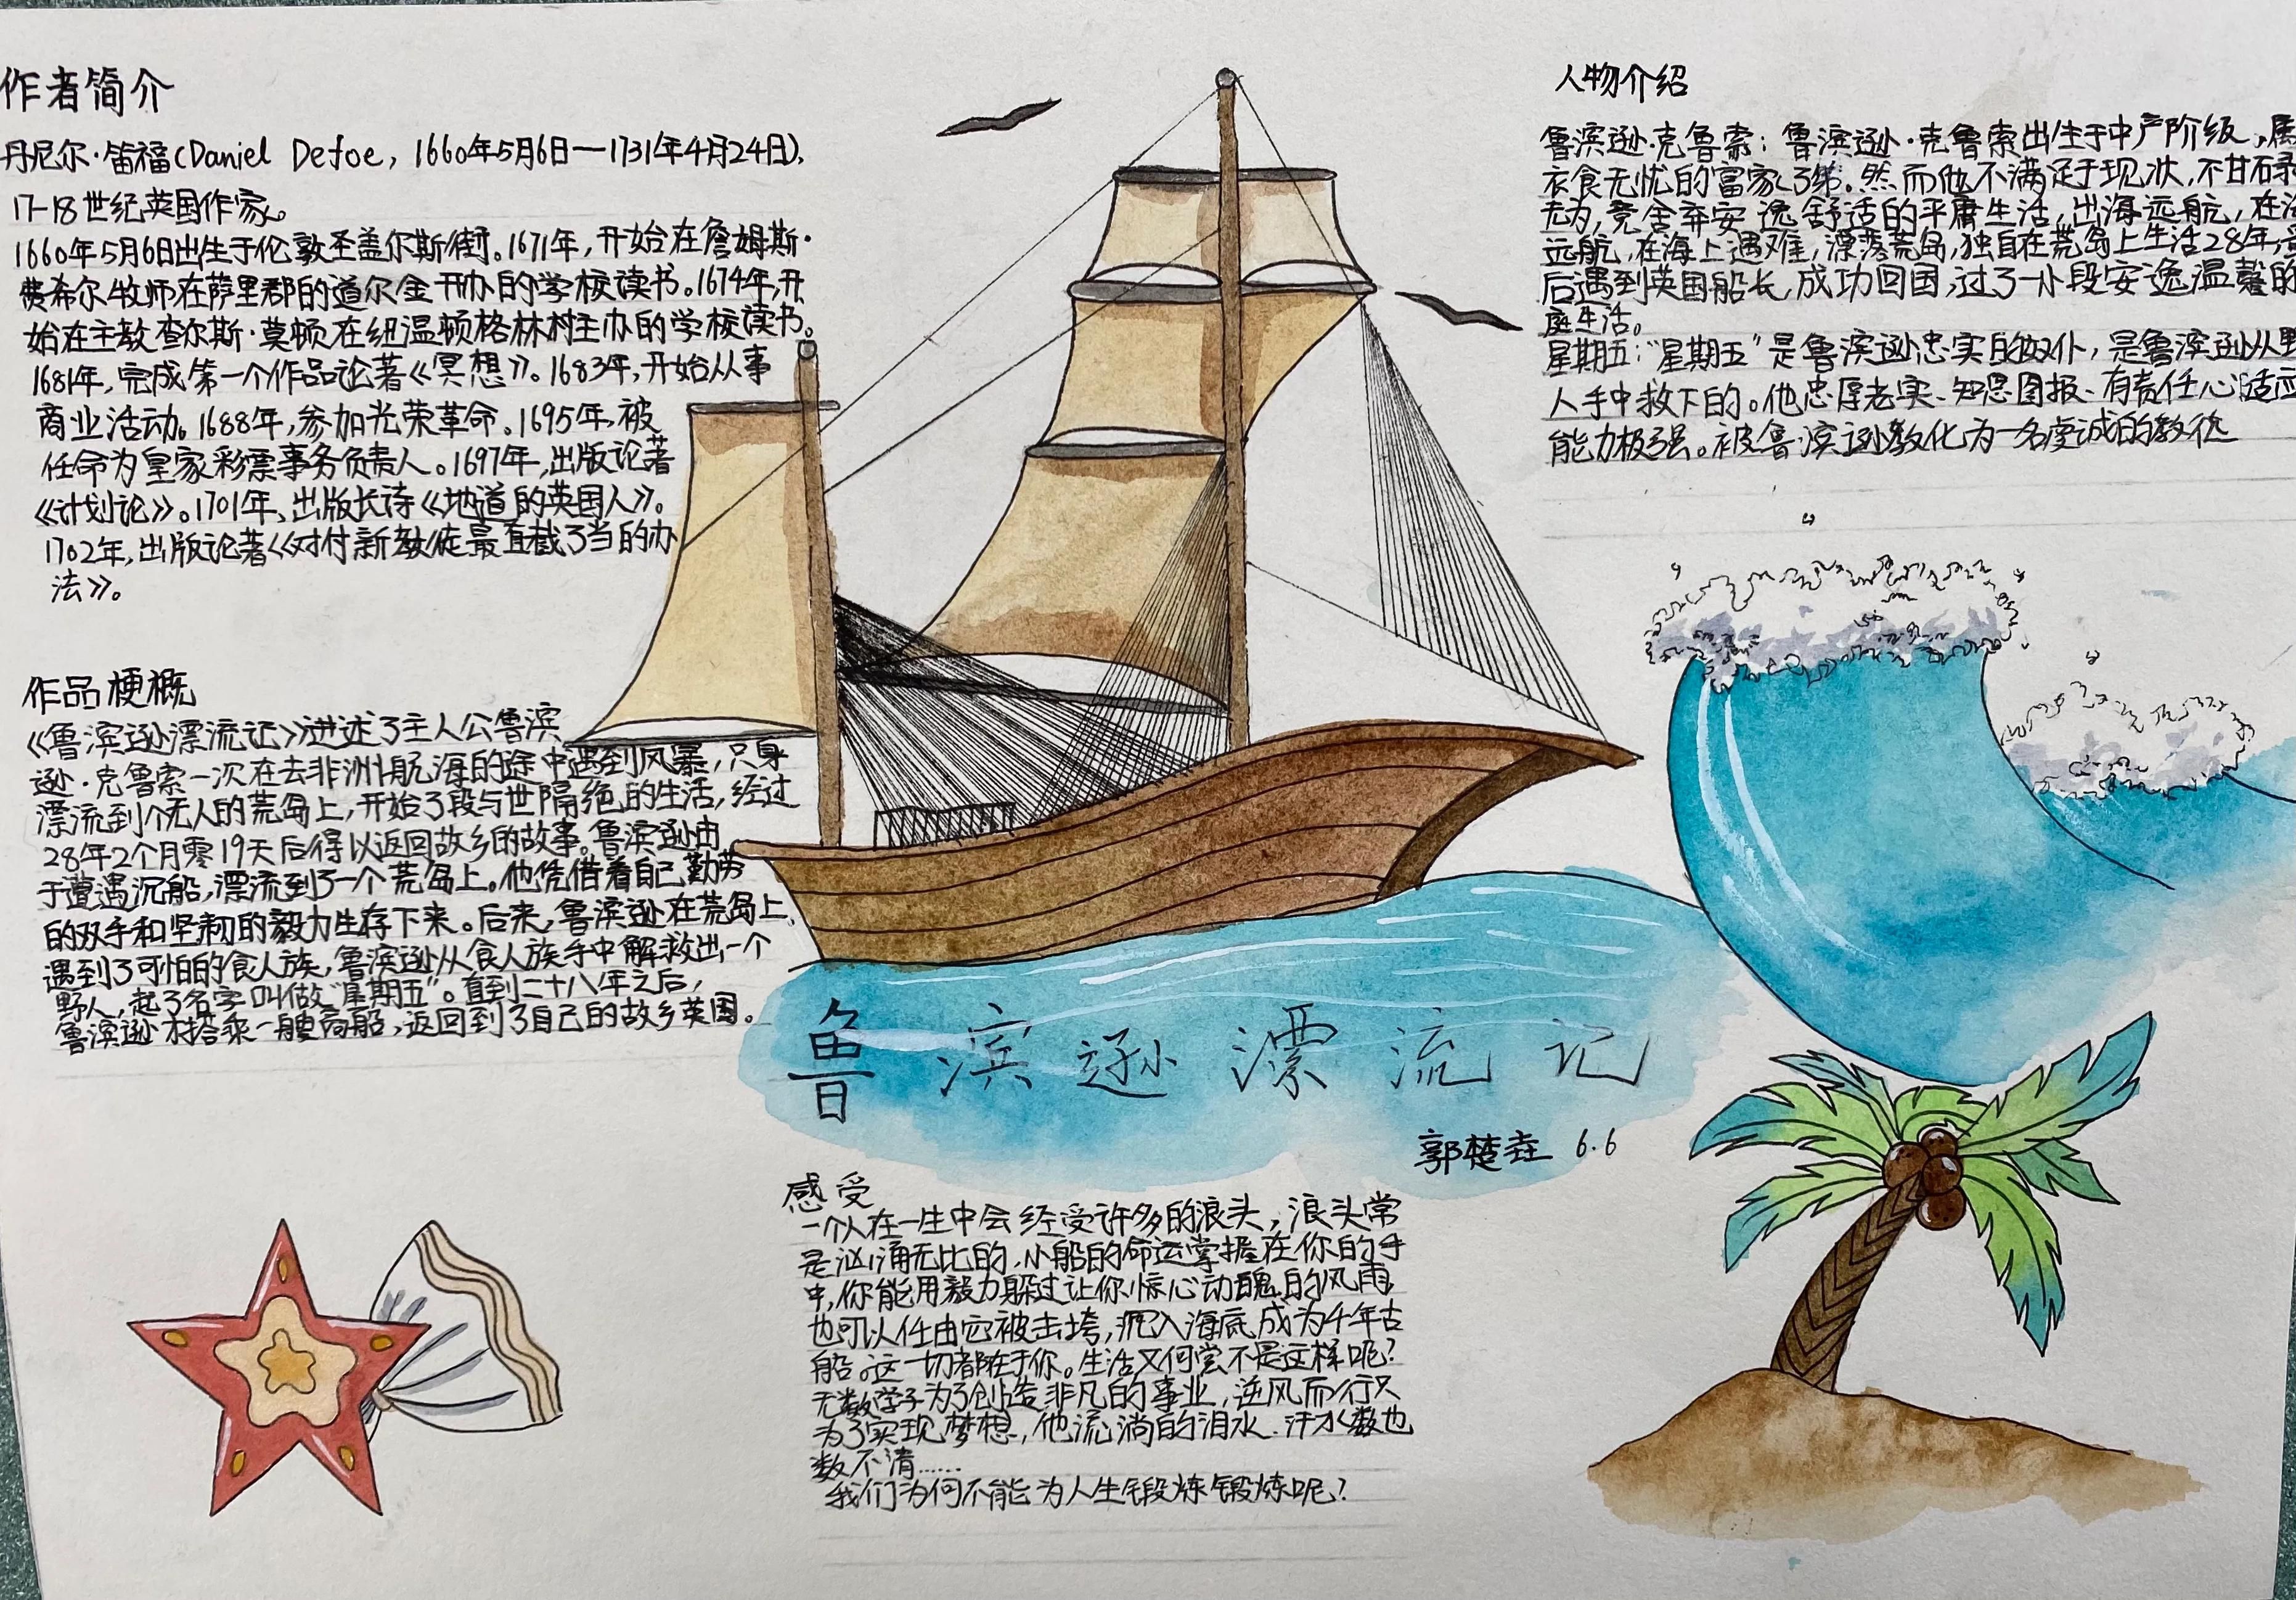 作者简介
丹尼尔·笛福(Daniel Defoe, 1660年5月6日—1731年4月24日),
17-18世纪英国作家。
1660年5月6日出生于伦敦圣盖尔斯街。1671年,开始在詹姆斯·
费希尔牧师在萨里郡的道尔金开办的学校读书。1674年,开
始在主教查尔斯·莫顿在纽温顿格林村主办的学校读书。
1681年,完成第一个作品论著《冥想》。1683年,开始从事
商业活动。1688年,参加光荣革命。1695年,被
任命为皇家彩票事务负责人。1697年,出版论著
《计划论》。1701年,出版长诗《地道的英国人》。
1702年,出版论著《对付新教徒最直截了当的办
法》。
作品梗概
《鲁滨逊漂流记》讲述了主人公鲁滨
逊·克鲁索一次在去非洲航海的途中遇到风暴,只身
漂流到个无人的荒岛上,开始了段与世隔绝的生活,经过
28年2个月零19天后得以返回故乡的故事。鲁滨逊由
于遭遇沉船,漂流到了一个荒岛上。他凭借着自己勤劳
的双手和坚韧的毅力生存下来。后来,鲁滨逊在荒岛上
遇到了可怕的食人族,鲁滨逊从食人族手中解救出一个
野人,起了名字叫做“星期五”。直到二十八年之后,
鲁滨逊才搭乘一艘商船,返回到了自己的故乡英国。
人物介绍
鲁滨逊·克鲁索:鲁滨逊·克鲁索出生于中产阶级,属
衣食无忧的富家子弟。然而他不满足于现状,不甘碌
无为,竟舍弃安逸舒适的平庸生活,出海远航,在
远航,在海上遇难,漂落荒岛,独自在荒岛上生活28年,
后遇到英国船长,成功回国,过了一小段安逸温馨的
庭生活。
星期五:“星期五”是鲁滨逊忠实的奴仆,是鲁滨逊从野
人手中救下的。他忠厚老实、知恩图报、有责任心适应
能力极强。被鲁滨逊教化为一名虔诚的教徒
鲁滨逊漂流记
郭楚垚 6.6
感受
一个人在一生中会经受许多的浪头,浪头常
是汹涌无比的,小船的命运掌握在你的手
中,你能用毅力躲过让你惊心动魄的风雨
也可以任由它被击垮,沉入海底成为千年古
船。这一切都在于你。生活又何尝不是这样呢?
无数学子为了创造非凡的事业,逆风而行只
为了实现梦想,他流淌的泪水、汗水数也
数不清……
我们为何不能为人生锻炼锻炼呢?